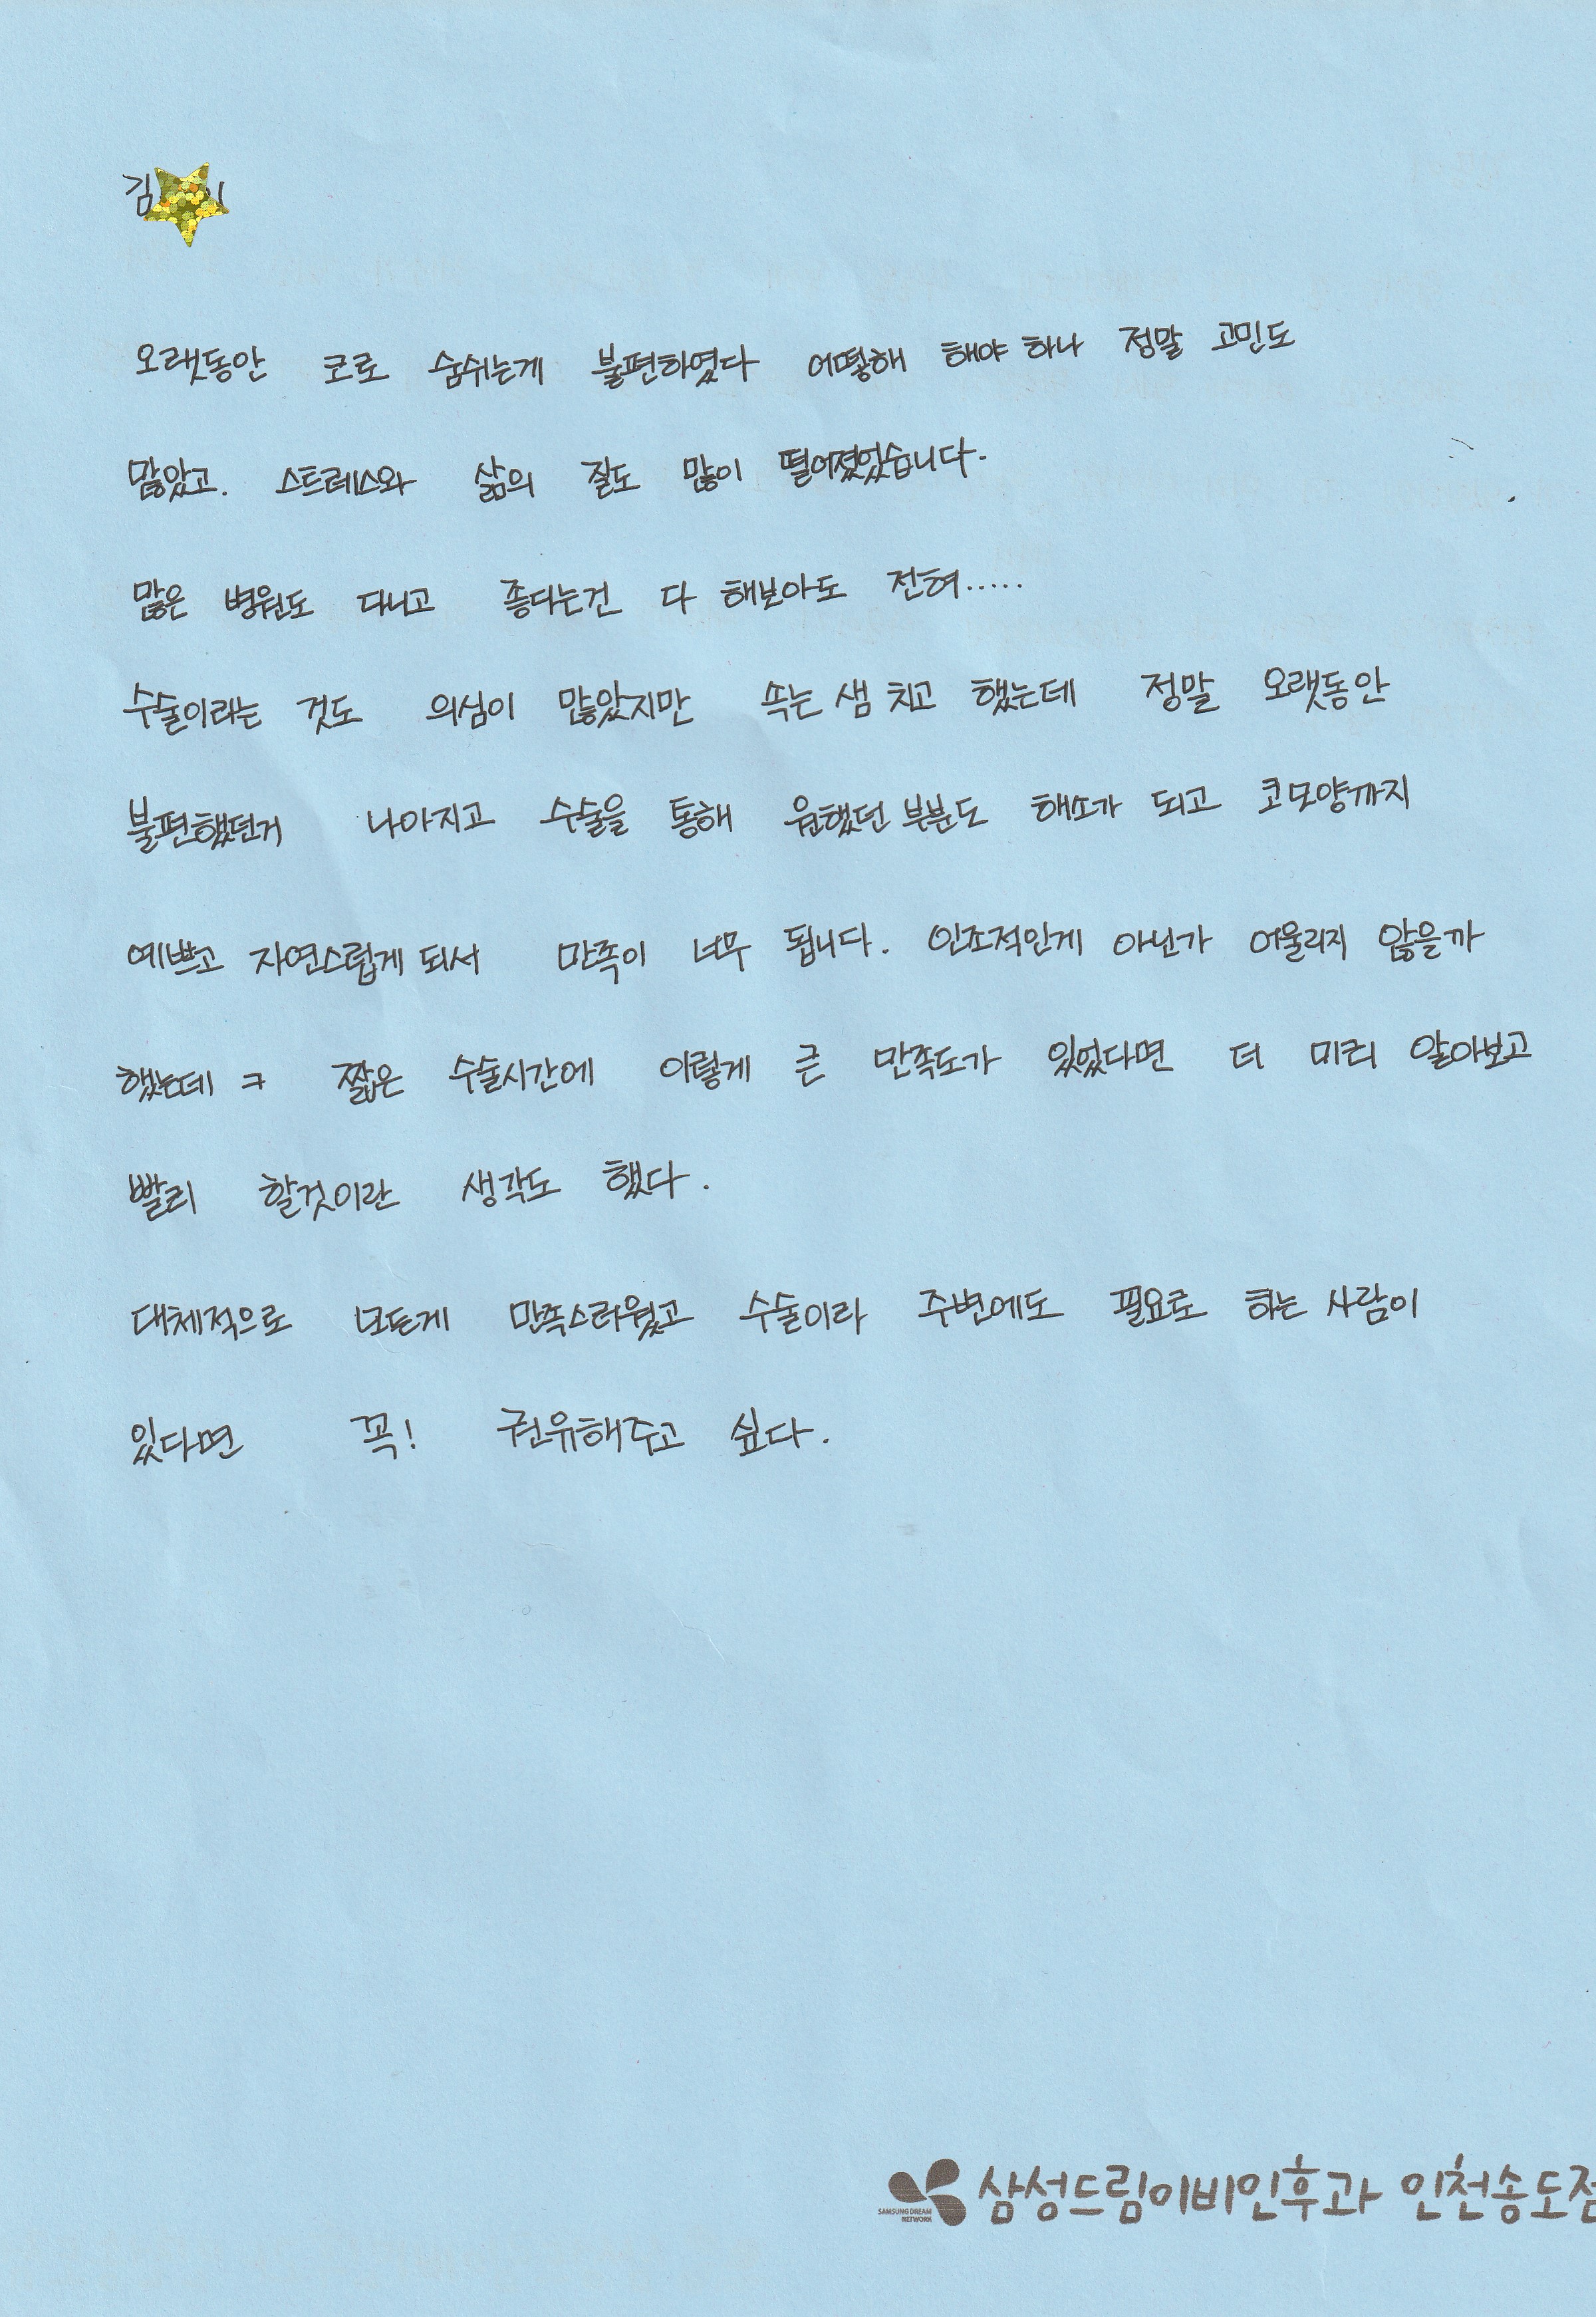 김
오랫동안 코로 숨쉬는게 불편하였다 어떻해 해야 하나 정말 고민도
많았고. 스트레스와 삶의 질도 많이 떨어졌었습니다.
많은 병원도 다니고 좋다는건 다 해보아도 전혀.....
수술이라는 것도 의심이 많았지만 속는 샘 치고 했는데 정말 오랫동안
불편했던거 나아지고 수술을 통해 원했던 부분도 해소가 되고 코모양까지
예쁘고 자연스럽게 되서 만족이 너무 됩니다. 인조적인게 아닌가 어울리지 않을까
했는데 ㅋ 짧은 수술시간에 이렇게 큰 만족도가 있었다면 더 미리 알아보고
빨리 할것이란 생각도 했다.
대체적으로 모든게 만족스러웠고 수술이라 주변에도 필요로 하는 사람이
있다면 꼭! 권유해주고 싶다.
SAMSUNG DREAM
NETWORK
삼성드림이비인후과 인천송도점